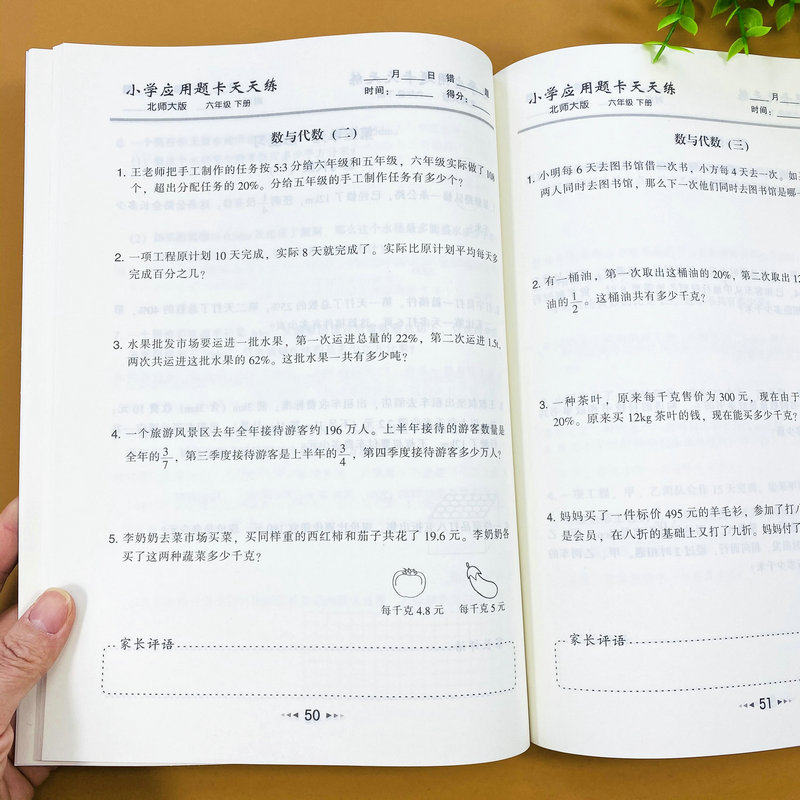 小学应用题卡天天练
北师大版 六年级 下册
月 日 错 题
时间： 得分：
数与代数（二）
1. 王老师把手工制作的任务按 5:3 分给六年级和五年级，六年级实际做了 108
个，超出分配任务的 20%。分给五年级的手工制作任务有多少个？
2. 一项工程原计划 10 天完成，实际 8 天就完成了。实际比原计划平均每天多
完成百分之几？
3. 水果批发市场要运进一批水果，第一次运进总量的 22%，第二次运进 1.5t，
两次共运进这批水果的 62%。这批水果一共有多少吨？
4. 一个旅游风景区去年全年接待游客约 196 万人。上半年接待的游客数量是
全年的3/7，第三季度接待游客是上半年的3/4，第四季度接待游客多少万人？
5. 李奶奶去菜市场买菜，买同样重的西红柿和茄子共花了 19.6 元。李奶奶各
买了这两种蔬菜多少千克？
每千克 4.8 元 每千克 5 元
家长评语
50
小学应用题卡天天练
北师大版 六年级 下册
月
时间：
数与代数（三）
1. 小明每 6 天去图书馆借一次书，小方每 4 天去一次。如
两人同时去图书馆，那么下一次他们同时去图书馆是哪一
2. 有一桶油，第一次取出这桶油的 20%，第二次取出 12
油的1/2。这桶油共有多少千克？
3. 一种茶叶，原来每千克售价为 300 元，现在由于
20%。原来买 12kg 茶叶的钱，现在能买多少千克？
4. 妈妈买了一件标价 495 元的羊毛衫，参加了打八
是会员，在八折的基础上又打了九折。妈妈付了
家长评语
51